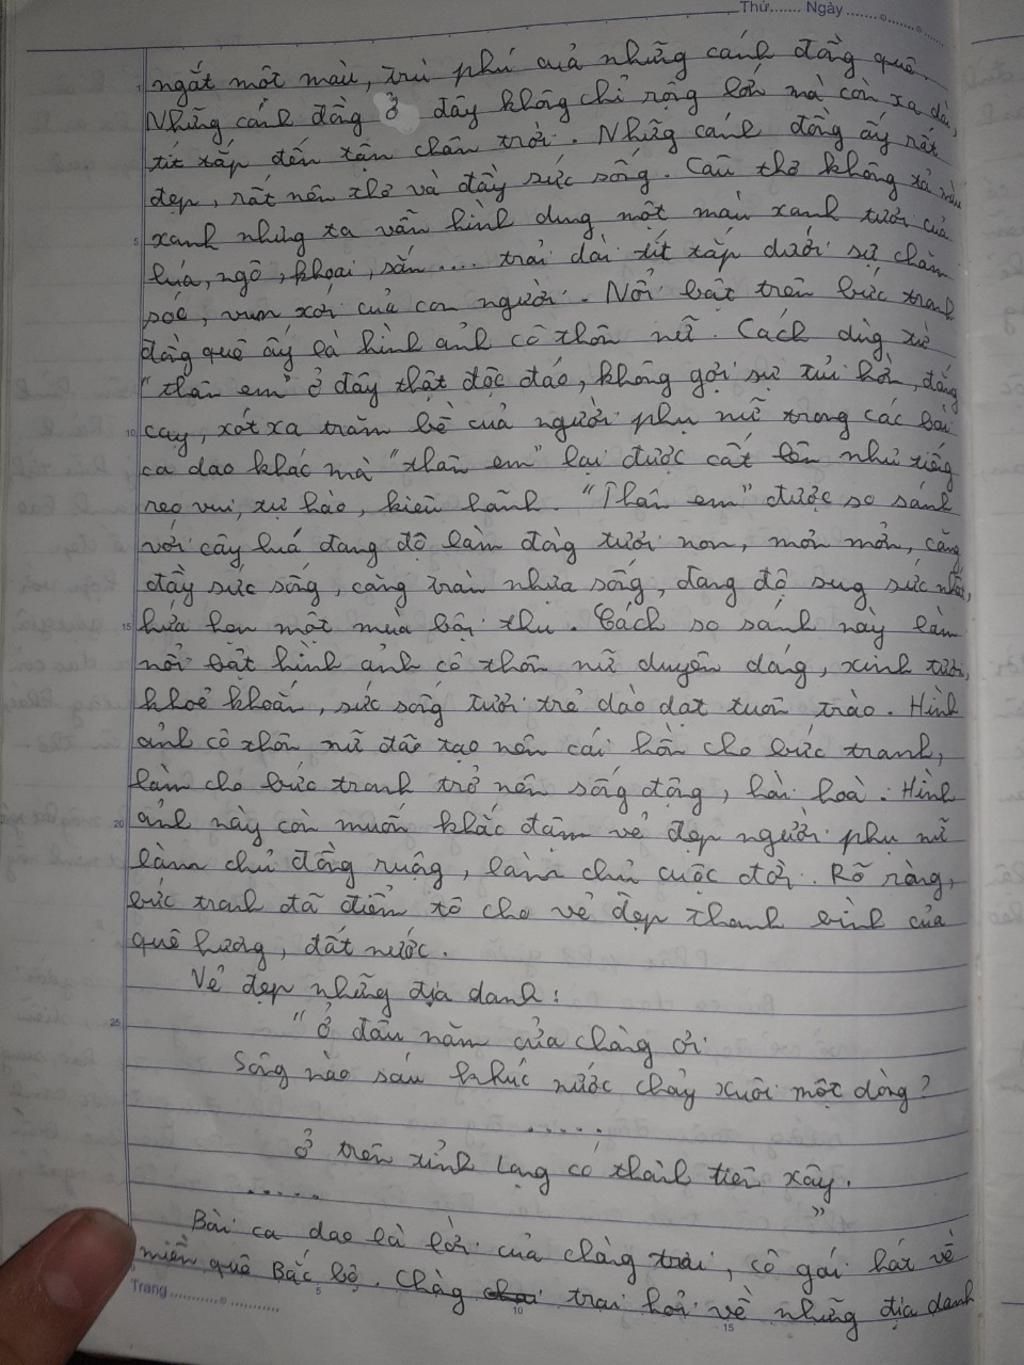 Thứ....... Ngày .......o.......o.......
ngắt một màu, trù phú của những cánh đồng quê.
Những cánh đồng ở đây không chỉ rộng lớn mà còn xa dài,
tít tắp đến tận chân trời. Những cánh đồng ấy rất
đẹp, rất nên thơ và đầy sức sống. Câu thơ không tả màu
5 xanh nhưng ta vẫn hình dung một màu xanh tươi của
lúa, ngô, khoai, sắn .... trải dài tít tắp dưới sự chăm
sóc, vun xới của con người. Nổi bật trên bức tranh
đồng quê ấy là hình ảnh cô thôn nữ. Cách dùng từ
"thân em" ở đây thật độc đáo, không gợi sự tủi hờn, đắng
10 cay, xót xa trăm bề của người phụ nữ trong các bài
ca dao khác mà "thân em" lại được cất lên như tiếng
reo vui, tự hào, kiêu hãnh. "Thân em" được so sánh
với cây lúa đang độ làm đòng tươi non, mơn mởn, căng
đầy sức sống, căng tràn nhựa sống, đang độ sung sức nhất,
15 hứa hẹn một mùa bội thu. Cách so sánh này làm
nổi bật hình ảnh cô thôn nữ duyên dáng, xinh tươi,
khoẻ khoắn, sức sống tươi trẻ dào dạt tuôn trào. Hình
ảnh cô thôn nữ đã tạo nên cái hồn cho bức tranh,
làm cho bức tranh trở nên sống động, hài hoà. Hình
20 ảnh này còn muốn khắc đậm vẻ đẹp người phụ nữ
làm chủ đồng ruộng, làm chủ cuộc đời. Rõ ràng,
bức tranh đã điểm tô cho vẻ đẹp thanh bình của
quê hương, đất nước.
Vẻ đẹp những địa danh:
25 "Ở đâu năm cửa chàng ơi
Sông nào sáu khúc nước chảy xuôi một dòng?
.....
Ở trên tỉnh Lạng có thành tiên xây.
..... "
Bài ca dao là lời của chàng trai, cô gái hát về
miền quê Bắc bộ. Chàng trai hỏi về những địa danh
Trang..........o...........
5 10 15